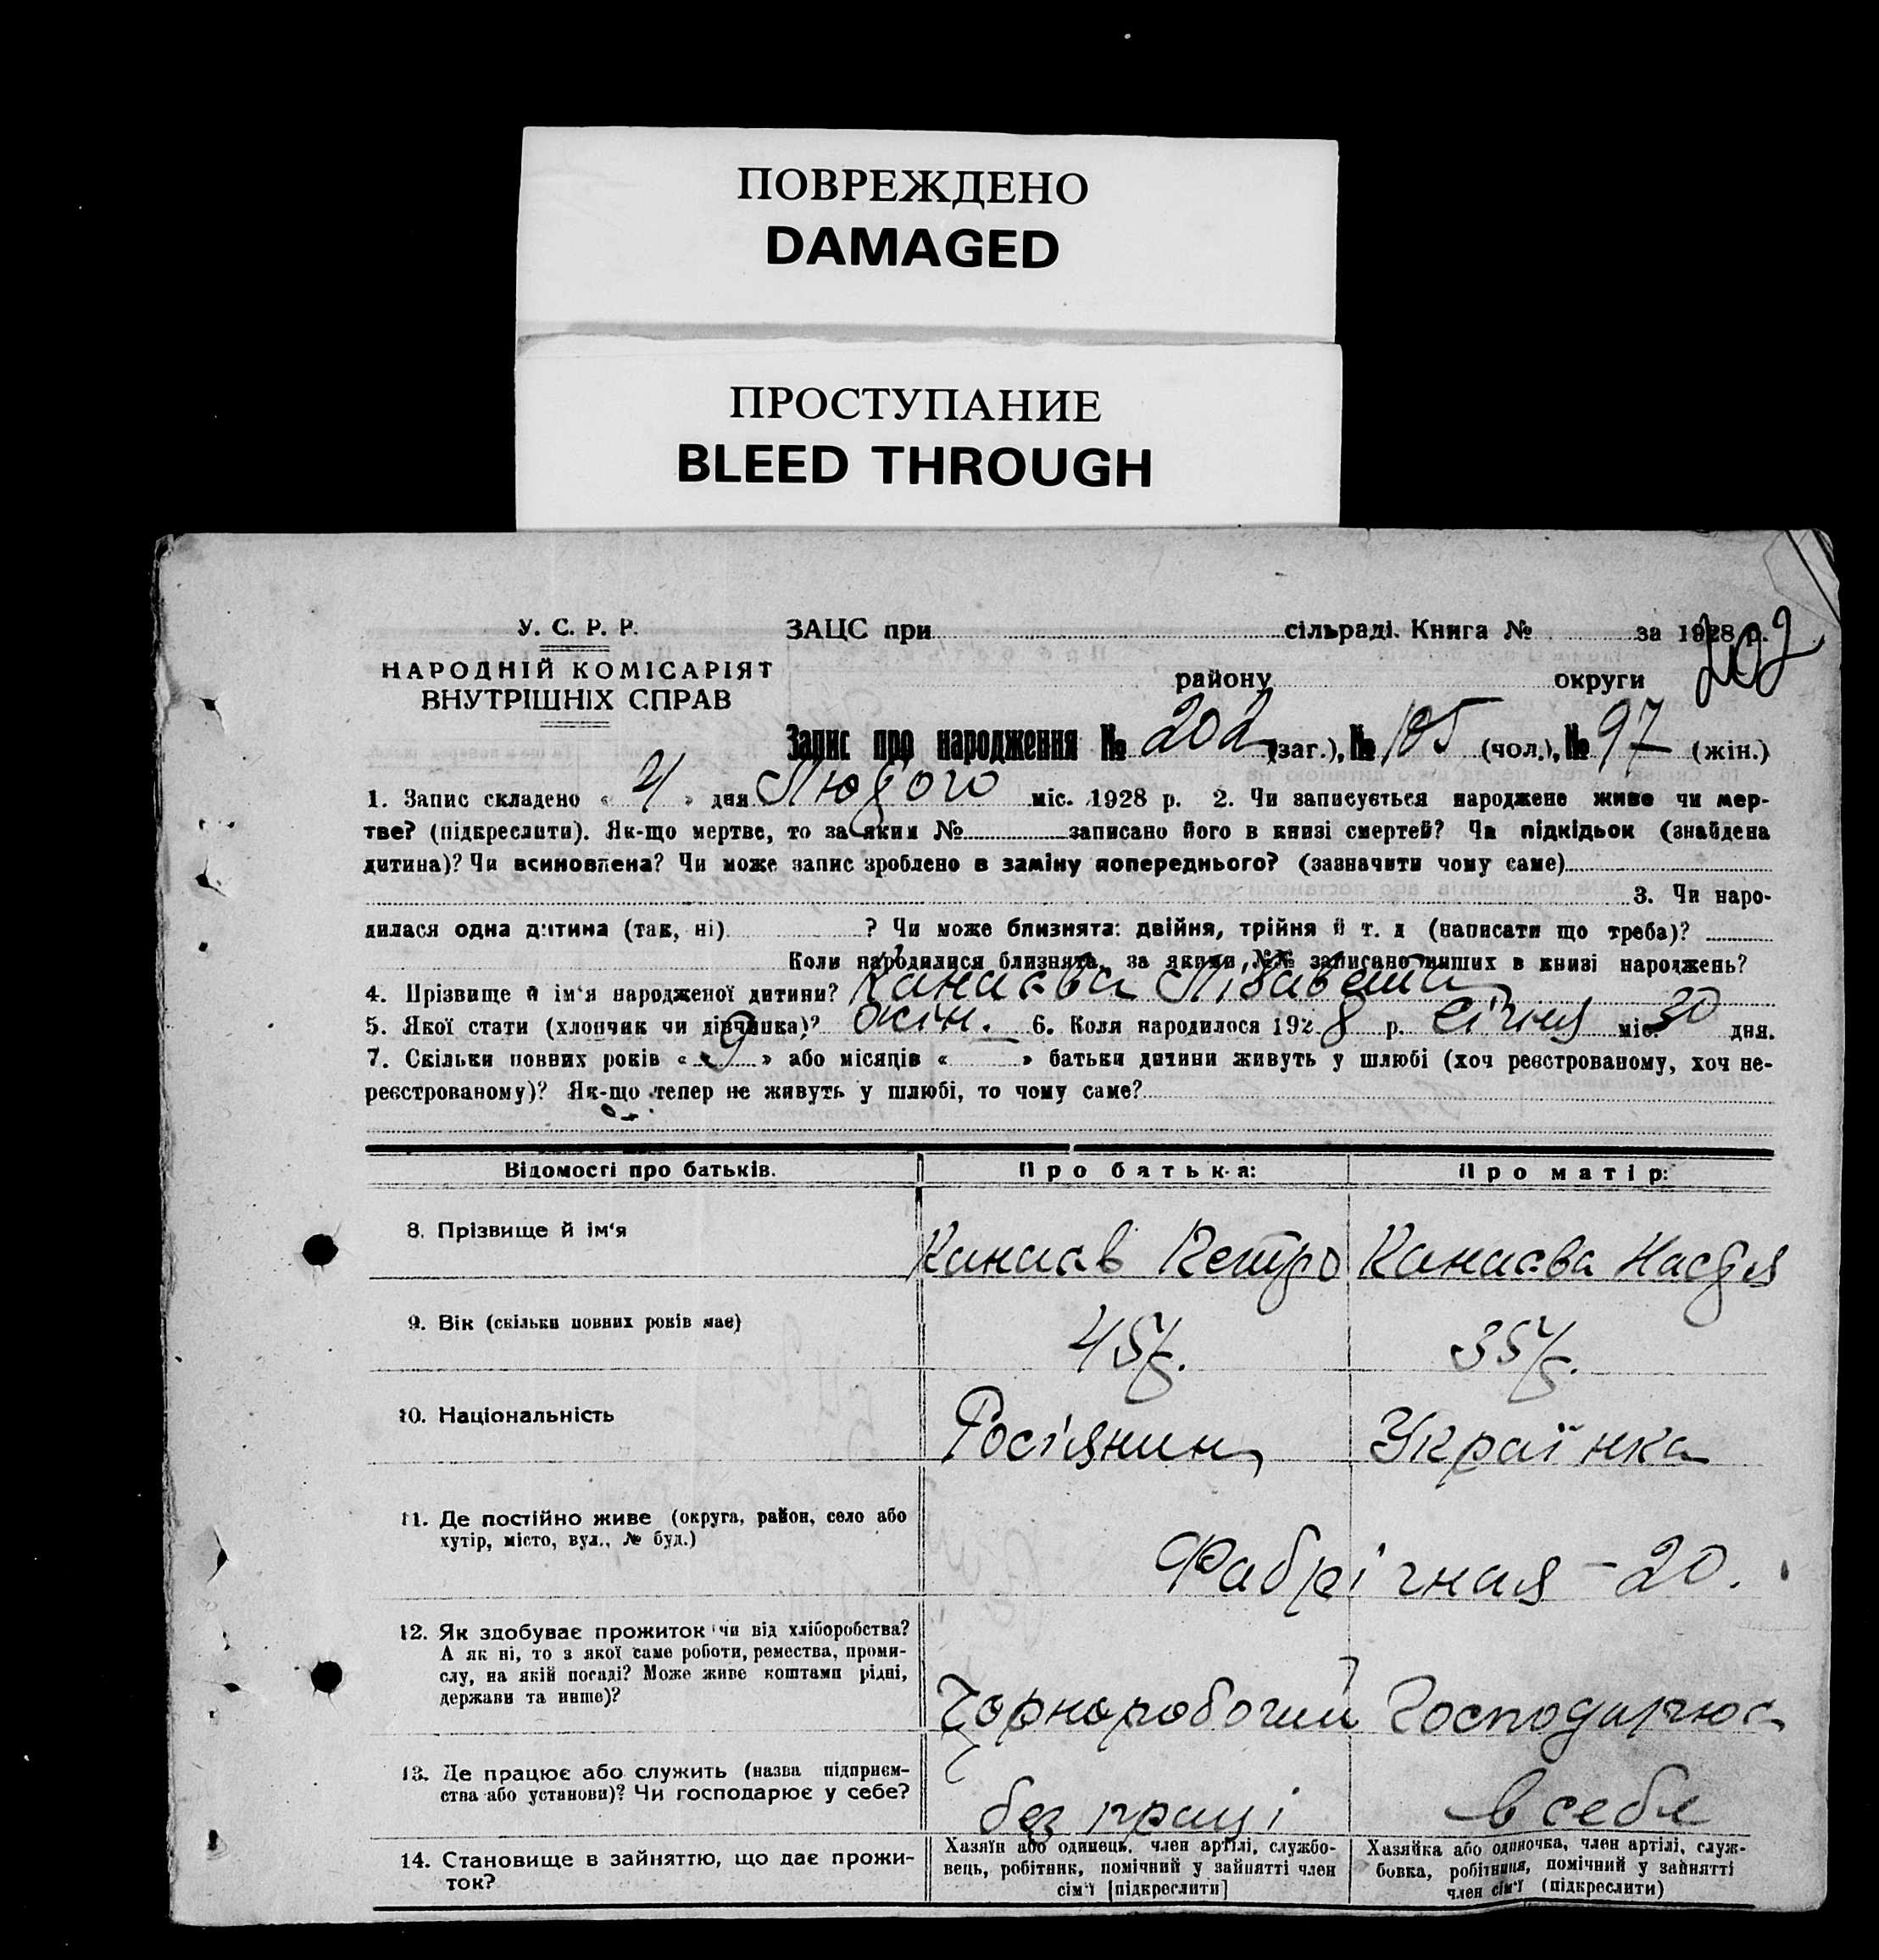 ПОВРЕЖДЕНО
DAMAGED
ПРОСТУПАНИЕ
BLEED THROUGH
У. С. Р. Р.
НАРОДНІЙ КОМІСАРІЯТ
ВНУТРІШНІХ СПРАВ
ЗАЦС при сільраді. Книга № за 1928 р.
202
району округи
Запис про народження № 202 (заг.), № 105 (чол.), № 97 (жін.)
1. Запис складено « 4 » дня Лютого міс. 1928 р. 2. Чи записується народжене живе чи мер-
тве? (підкреслити). Як-що мертве, то за яким № записано його в книзі смертей? Чи підкідьок (знайдена
дитина)? Чи всиновлена? Чи може запис зроблено в заміну попереднього? (зазначити чому саме)
3. Чи наро-
дилася одна дитина (так, ні) ? Чи може близнята: двійня, трійня й т. д (написати що треба)?
Коли народилися близнята, за якими №№ записано инших в книзі народжень?
4. Прізвище й ім'я народженої дитини? Канаєва Лізавета
5. Якої стати (хлопчик чи дівчинка)? жін. 6. Коли народилося 1928 р. січня міс. 30 дня.
7. Скільки повних років « 9 » або місяців « » батьки дитини живуть у шлюбі (хоч реєстрованому, хоч не-
реєстрованому)? Як-що тепер не живуть у шлюбі, то чому саме?
Відомості про батьків. Про батька: Про матір:
8. Прізвище й ім'я Канаєв Петро Канаєва Настя
9. Вік (скільки повних років має) 45 35
10. Національність Росіянин Українка
11. Де постійно живе (округа, район, село або
хутір, місто, вул., № буд.)
Фабрічная - 20.
12. Як здобуває прожиток чи від хліборобства?
А як ні, то з якої саме роботи, ремества, проми-
слу, на якій посаді? Може живе коштами рідні,
держави та инше)?
Чорноробочий Господарює
13. Де працює або служить (назва підприєм-
ства або установи)? Чи господарює у себе?
без праці в себе
14. Становище в зайняттю, що дає прожи-
ток?
Хазяїн або одинець, член артілі, службо-
вець, робітник, помічний у зайнятті член
сім'ї [підкреслити]
Хазяйка або одиночка, член артілі, служ-
бовка, робітниця, помічний у зайнятті
член сім'ї (підкреслити)